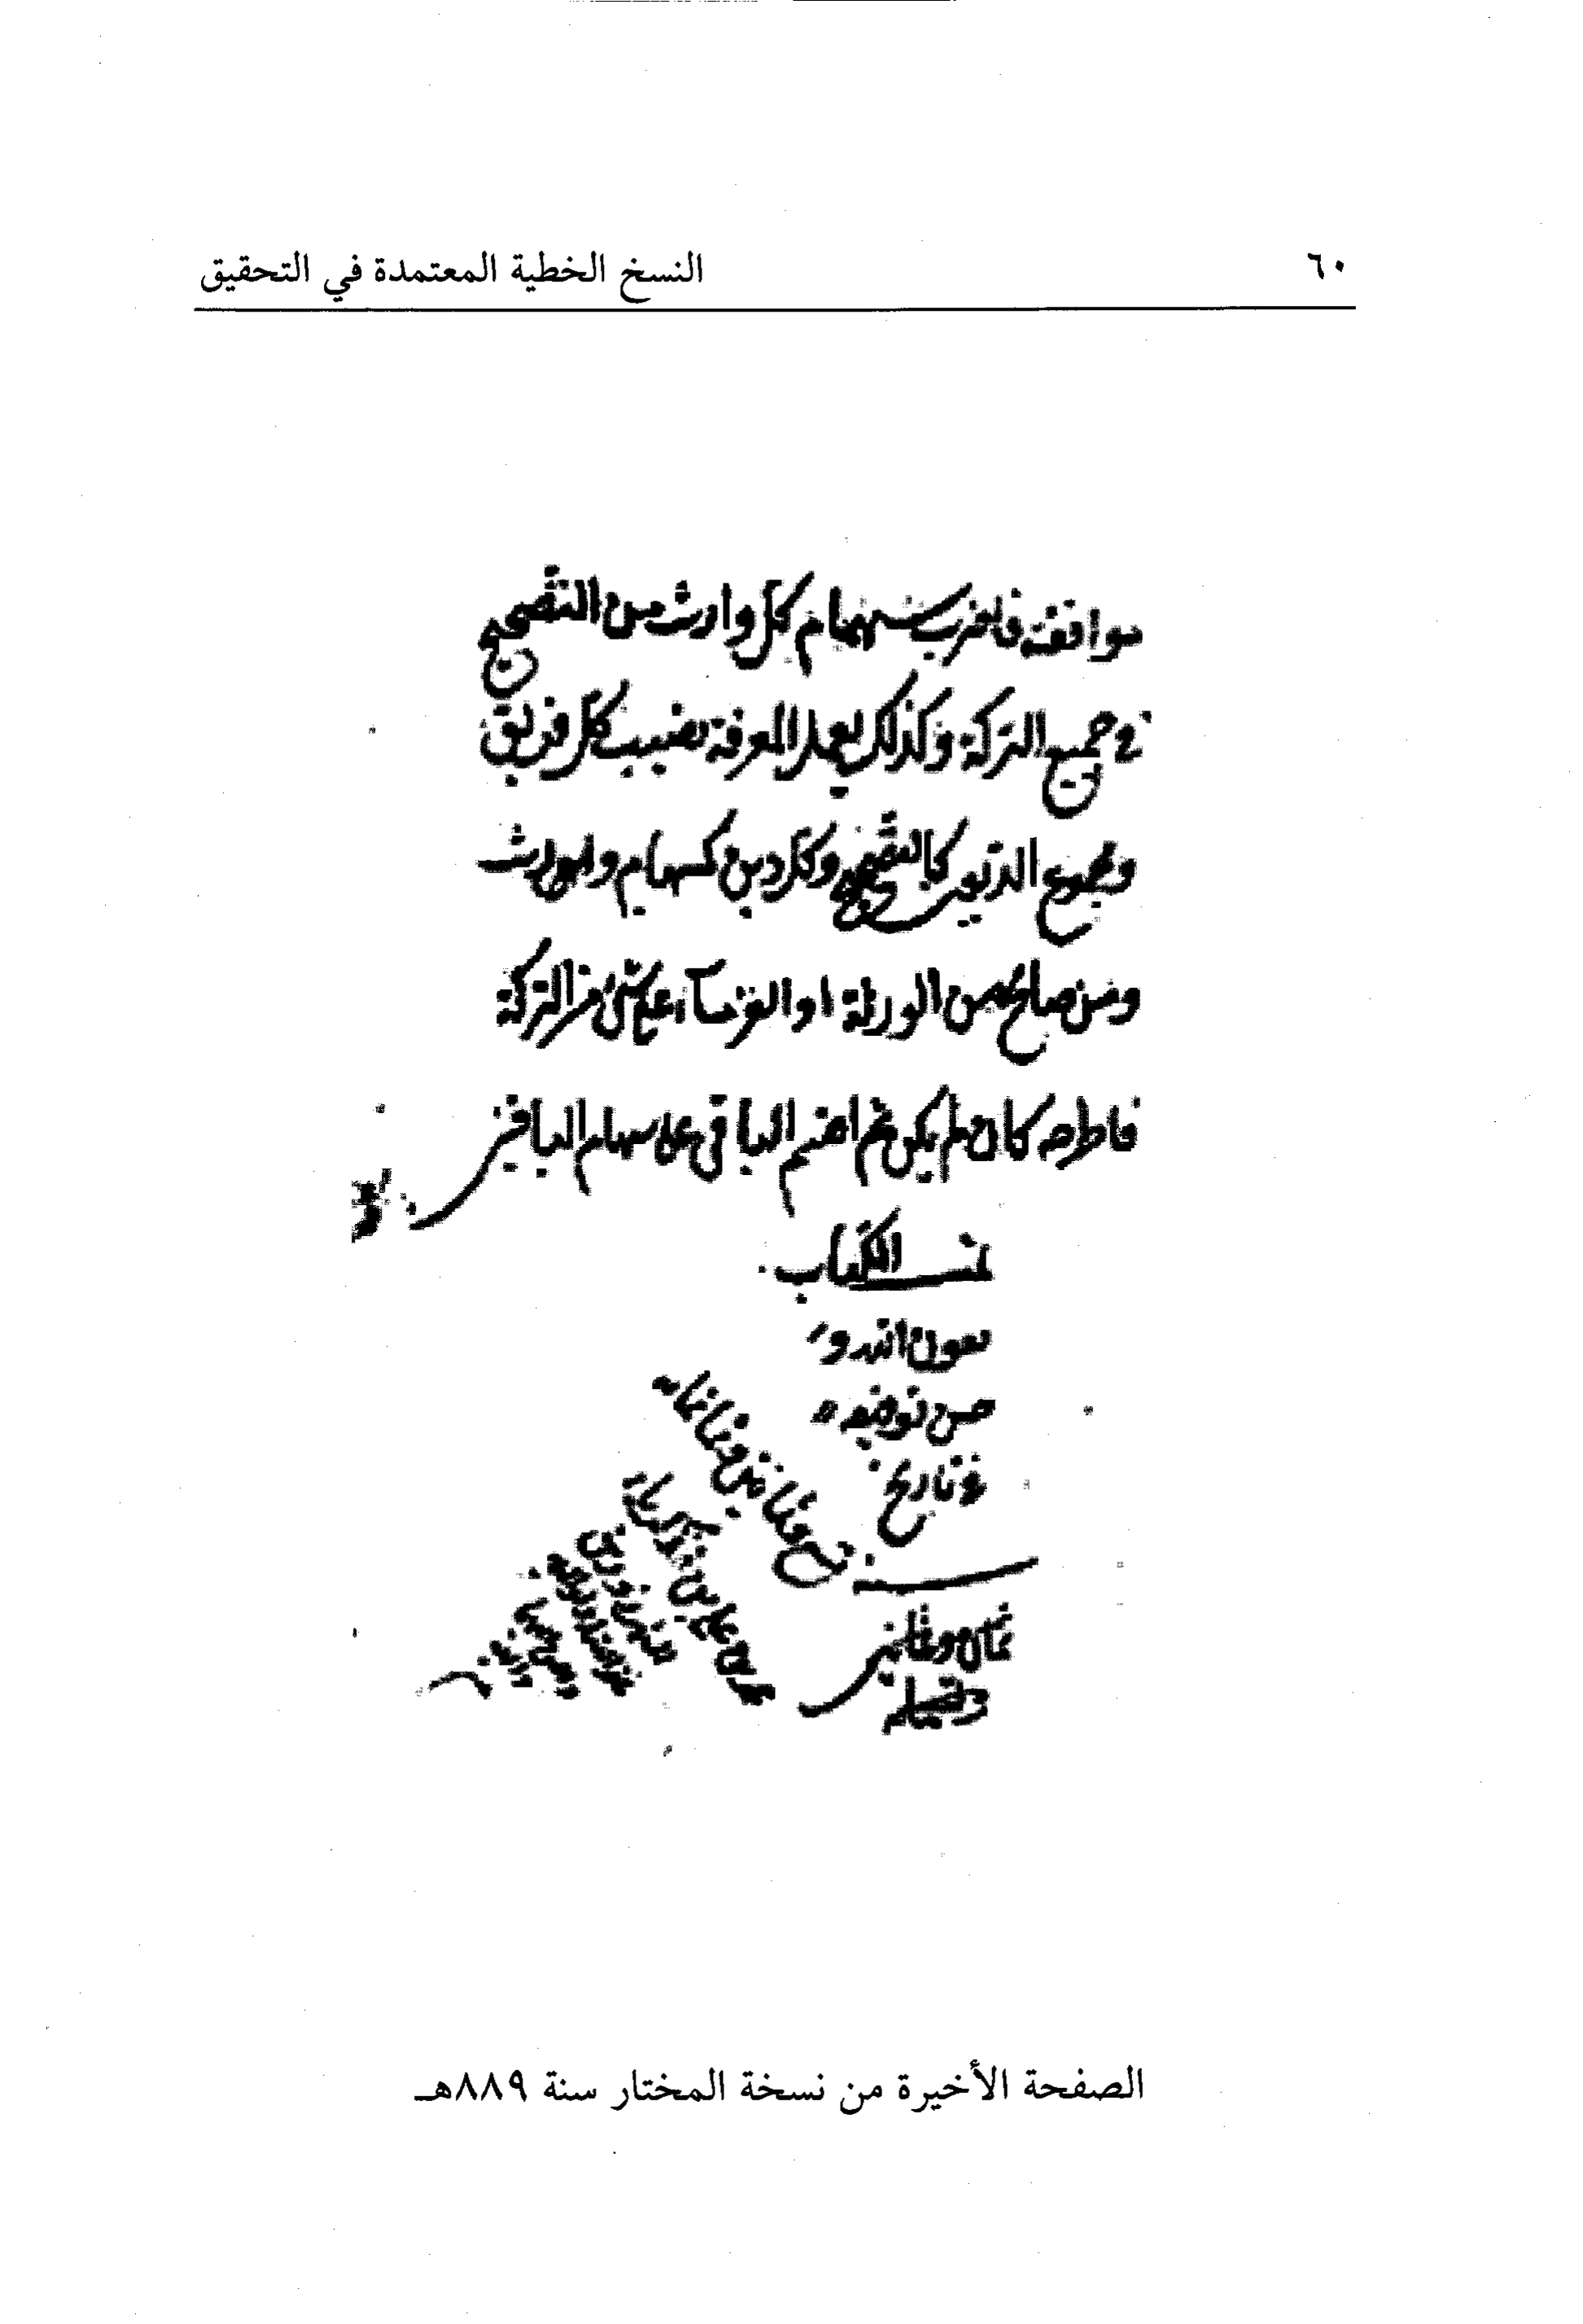 ٦٠ النسخ الخطية المعتمدة في التحقيق
موافقة فاضرب سهام كل وارث من التصحيح
في جميع التركة وكذلك يعمل لمعرفة نصيب كل فريق
ومجموع الديون كالتصحيح وكل دين كسهام وارث
ومن صالح من الورثة او الغرماء على شئ من التركة
فاطرحه كان لم يكن ثم اقسم الباقي على سهام الباقين
تمت الكتاب
بعون الله و
حسن توفيقه
في تاريخ
سنة تسع وثمانين وثمانمايه
الصفحة الأخيرة من نسخة المختار سنة ٨٨٩هـ